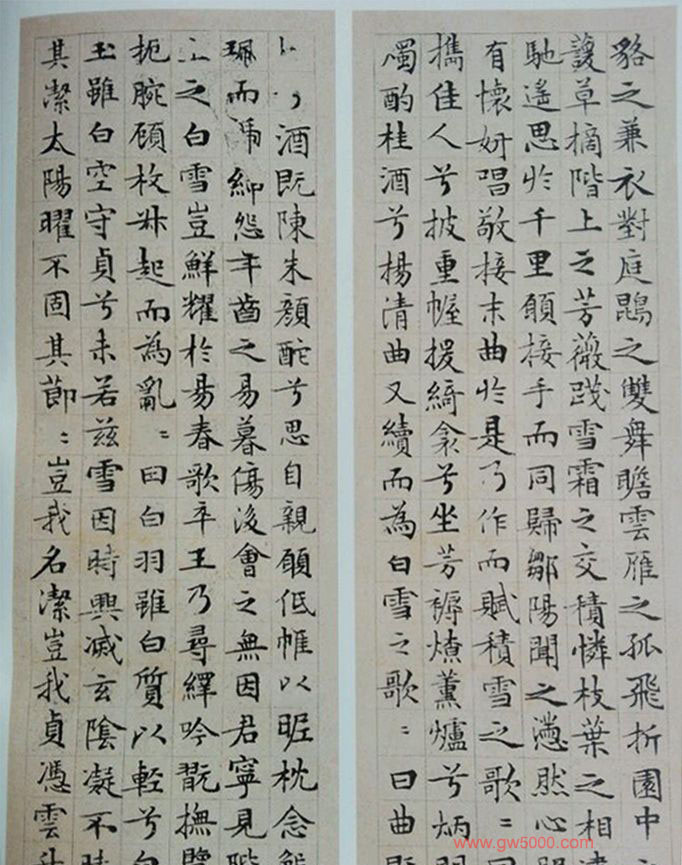 貉之兼衣對庭鵾之雙舞瞻雲雁之孤飛折園中
諼草摘階上之芳薇踐雪霜之交積憐枝葉之相
馳遙思於千里願接手而同歸鄒陽聞之懣然心
有懷妍唱敬接末曲於是乃作而賦積雪之歌〻曰
攜佳人兮披重幄援綺衾兮坐芳褥燎薰爐兮炳明
燭酌桂酒兮揚清曲又續而為白雪之歌〻曰曲既
酒既陳朱顏酡兮思自親願低帷以昵枕念解
珮而褫紳怨年齒之易暮傷後會之無因君寧見階
上之白雪豈鮮耀於易春歌卒王乃尋繹吟翫撫覽
扼腕顧枚叔起而為亂〻曰白羽雖白質以輕兮白
玉雖白空守貞兮未若茲雪因時興滅玄陰凝不昧
其潔太陽曜不固其節〻豈我名潔豈我貞憑雲升
www.gw5000.com